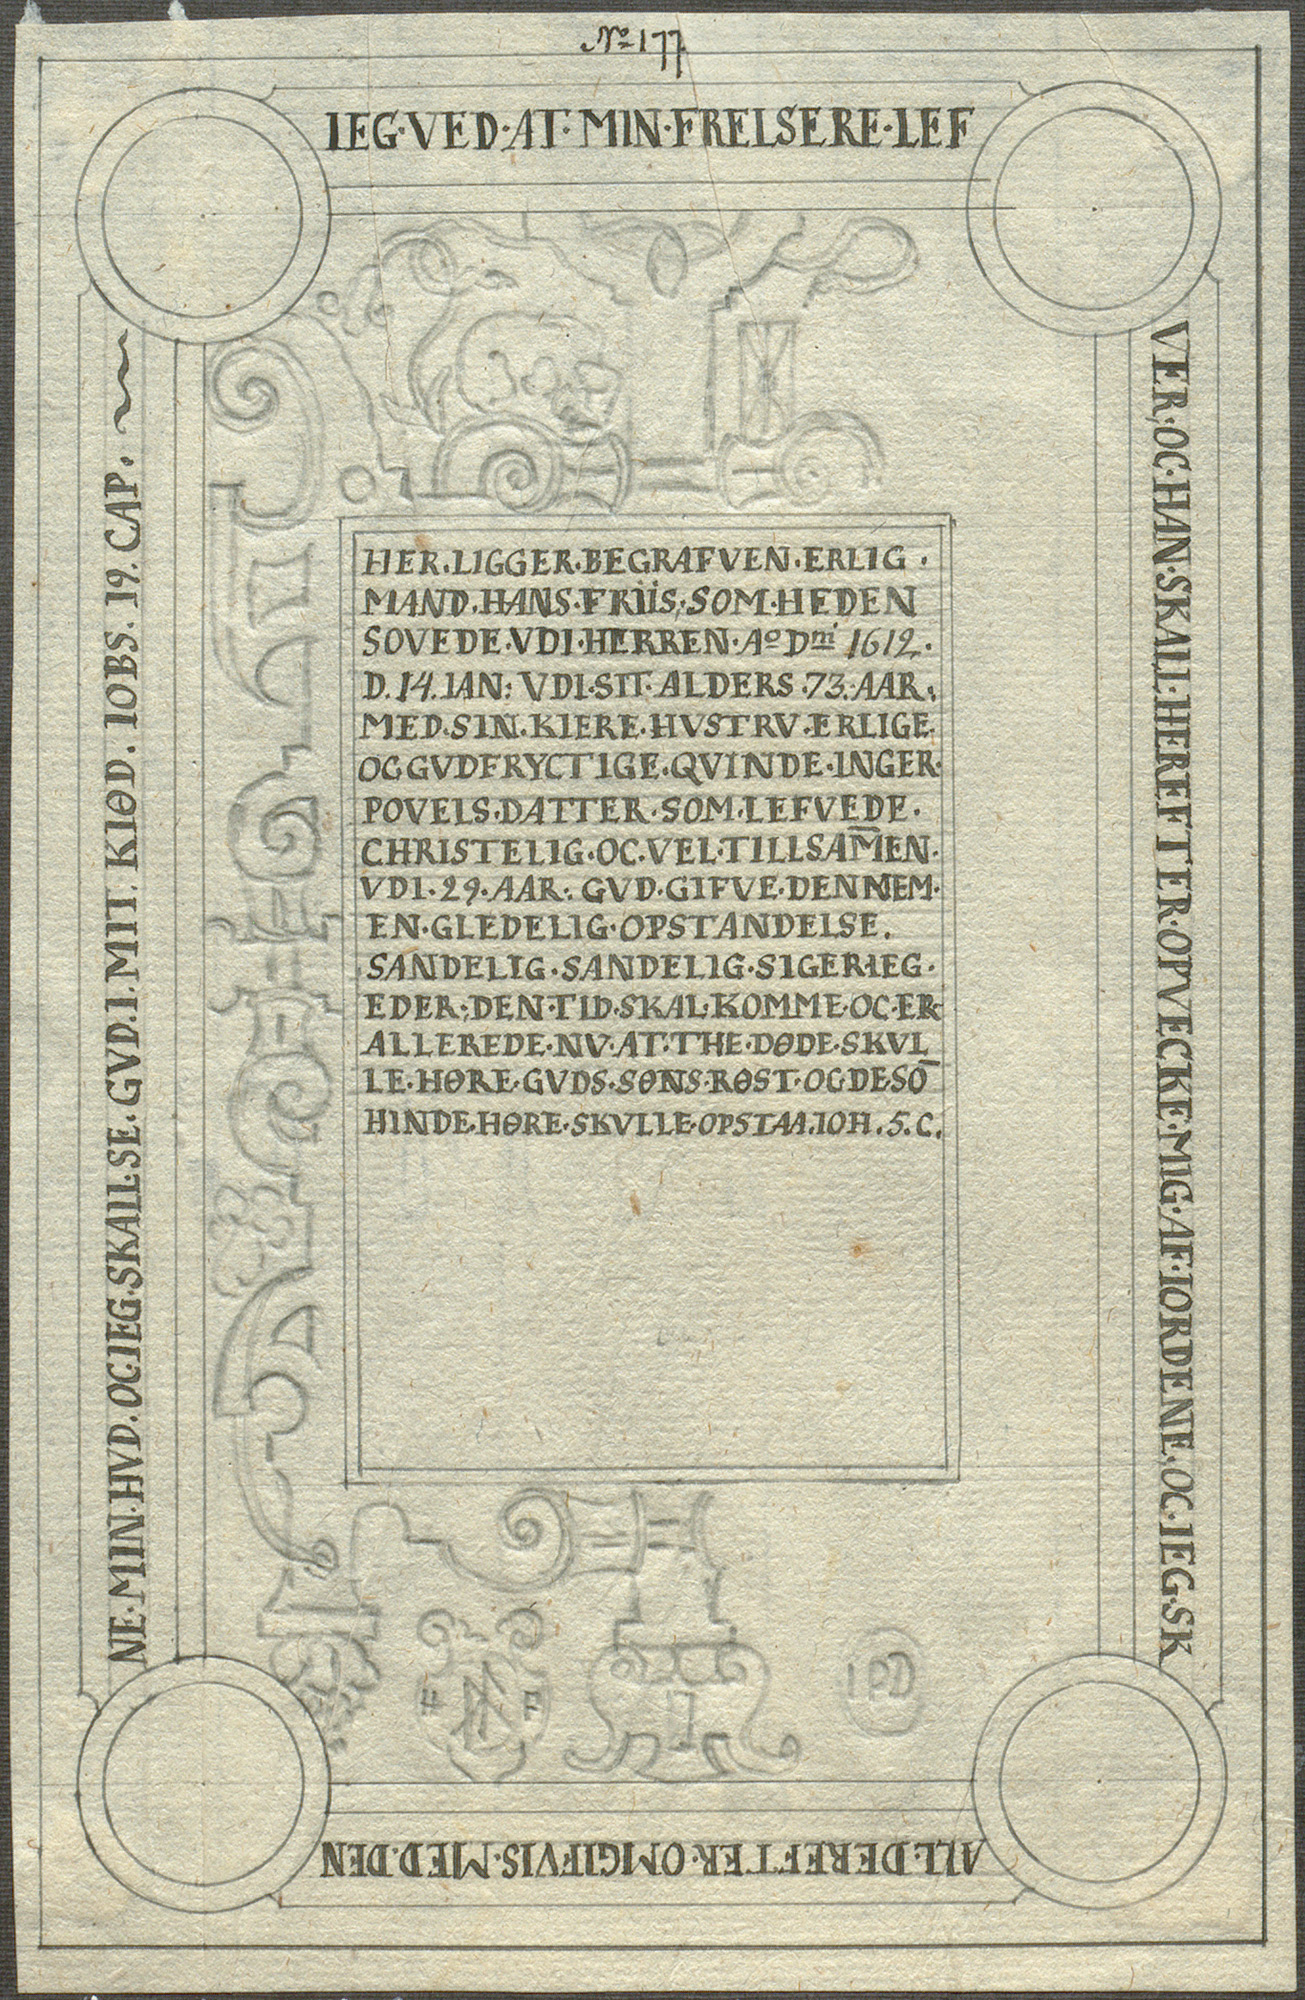 No 177
IEG·VED·AT·MIN·FRELSERE·LEF
VER, OC·HAN·SKALL·HEREFTER·OPVECKE·MIG·AF·IORDENE. OC·IEG·SK
ALL·DEREFTER·OMGIFVIS·MED·DEN
NE·MIN·HVD. OC·IEG·SKALL·SE·GVD·I·MIT·KIØD. IOBS. 19. CAP.
HER·LIGGER·BEGRAFVEN·ERLIG·
MAND·HANS·FRIIS, SOM·HEDEN
SOVEDE·VDI·HERREN·Ao Dni 1612.
D. 14. IAN: VDI·SIT·ALDERS·73·AAR,
MED·SIN·KIERE·HVSTRV·ERLIGE·
OC GVDFRYCTIGE·QVINDE·INGER·
POVELS·DATTER·SOM·LEFVEDE·
CHRISTELIG·OC·VEL·TILLSAM̅EN·
VDI·29·AAR: GVD·GIFVE·DENNEM·
EN·GLEDELIG·OPSTANDELSE.
SANDELIG·SANDELIG·SIGER·IEG·
EDER; DEN·TID·SKAL·KOMME·OC·ER·
ALLEREDE·NV·AT·THE·DØDE·SKVL
LE·HØRE·GVDS·SØNS·RØST·OC DE SO̅
HINDE·HØRE·SKVLLE·OPSTAA. IOH. 5. C.
H F
IPD